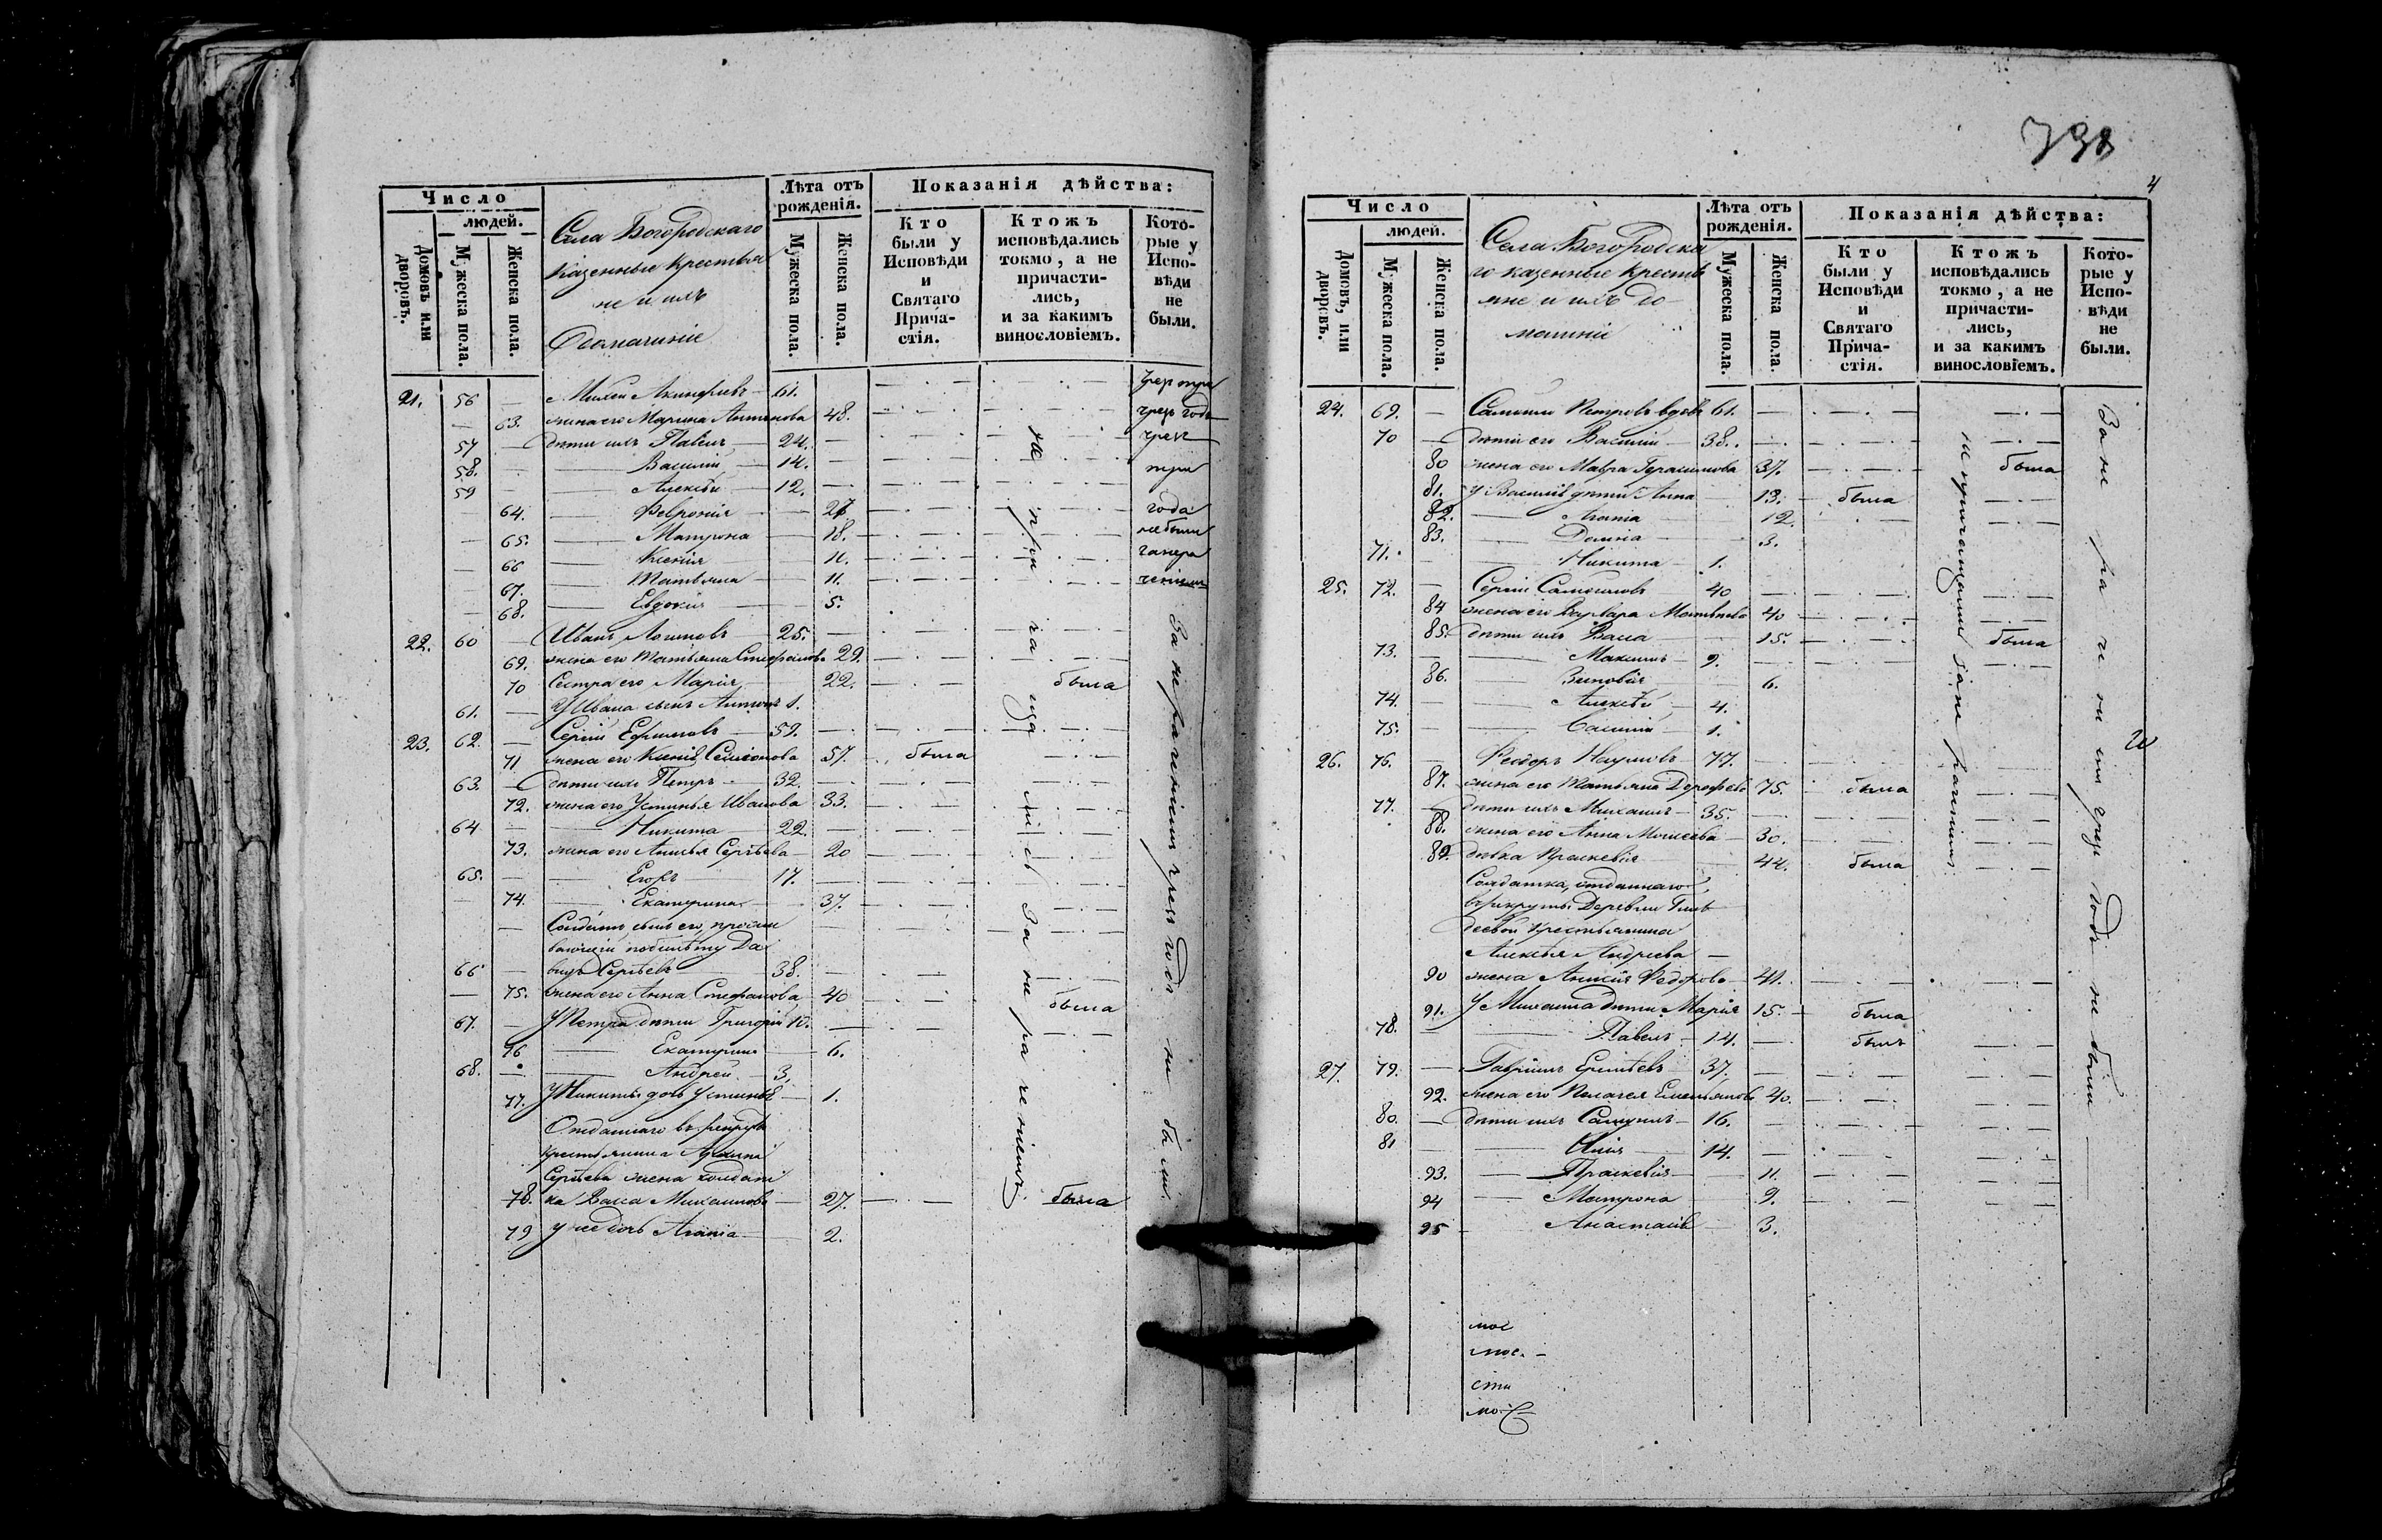 Число
людей.
Домовъ или дворовъ.
Мужеска пола.
Женска пола.
Села Богородскаго
казенные крестья
не и ихъ
Домашніе
Лѣта отъ рожденія.
Мужеска пола.
Женска пола.
Показанія дѣйства:
Кто были у Исповѣди и Святаго Причастія.
Ктожъ исповѣдались токмо, а не причастились, и за какимъ винословіемъ.
Которые у Исповѣди не были.
21. 56 — Михеи Акинфіевъ — 61. чрез три
— 63. жена его Марина Антонова 48. чрезъ годъ
57 — дѣти ихъ Павелъ — 24. чрез
58. Василій — 14. три
59 — Алексѣй — 12.
— 64. Феврониія 27 года
— 65. Матрона 18. не были
— 66 Ксенія 11. за нера
— 67. Татьяна 11. ченіемъ
— 68. Евдокія 5.
22. 60 — Иванъ Логиновъ — 25.
69. жена его Татьяна Стефанова 29.
70 Сестра его Марія 22. была
61. — У Ивана сынъ Антонъ 1.
23. 62. — Сергій Ефимовъ — 59.
71 жена его Ксенія Семіонова 57. была
63. — дѣти ихъ Петръ — 32.
72. жена его Устинья Иванова 33.
64 — Никита — 22.
73. жена его Анисья Сергѣева — 20
65. — Егоръ — 17.
— 74. Екатерина 37.
— Солдатъ, сынъ его, прожи
вающій по билѣту Да
66 — видъ Сергѣевъ 38.
— 75. жена его Анна Стефанова, 40 была
67. — У Петра дѣти Григорій 10.
76 Екатерина 6.
68. — Андрей — 3.
77. У Никиты дочь Устинья — 1.
Отданнаго въ рекруты
крестьянина
Сергѣева жена солдат
78. ка Васса Михаилова — 27. была
79 у нее дочь Агапіа 2.
не при ча ща ли сь За не ра че ніемъ
За нераченіемъ чрезъ годъ не были.
738
4
Число
людей.
Домовъ, или дворовъ.
Мужеска пола.
Женска пола.
Села Богородска
го казенные кресть
яне и ихъ до-
машніи
Лѣта отъ рожденія.
Мужеска пола.
Женска пола.
Показанія дѣйства:
Кто были у Исповѣди и Святаго Причастія.
Ктожъ исповѣдались токмо, а не причастились, и за какимъ винословіемъ.
Которые у Исповѣди не были.
24. 69. — Петровъ вдовъ 61.
70 — дѣти его Василій 38.
80 жена его Мавра Герасимова 37. была
81. у Василія дѣти Анна 13. была
82. Агапіа 12.
83. Домніа 3.
71. Никита 1.
25. 72. — Сергій 40
84 жена его Варвара Матвѣева 40
85. дѣти ихъ Васса 15. была
73. — Максимъ — 9.
86. Зиновія 6.
74. — Алексѣй 4.
75. — 1.
26. 76. — Феодоръ Наумовъ 77.
87. жена его Татьяна Дорофеева 75. была
77. — дѣти ихъ Михаилъ — 35.
88. жена его Анна Моисеева — 30.
89. дѣвка Праскевія 44. была
Солдатка, отданнаго
въ рекруты Деревни
крестьянина
Алексѣя Андреева —
90 жена Анисія Федорова 41.
91. У Михаила дѣти Марія 15. была
78. — Павелъ — 14. былъ
27. 79. — Гавріилъ 37.
92. жена его Пелагея Емельянова 40.
80. — дѣти ихъ Самуилъ — 16.
81 — Илія 14.
93. Праскевія 11.
94 Матрона 9.
95 Анастасія 3.
не причащались за не раченіемъ
За не ра че ні емъ чрезъ годъ не были
20
мое
мое. —
сти